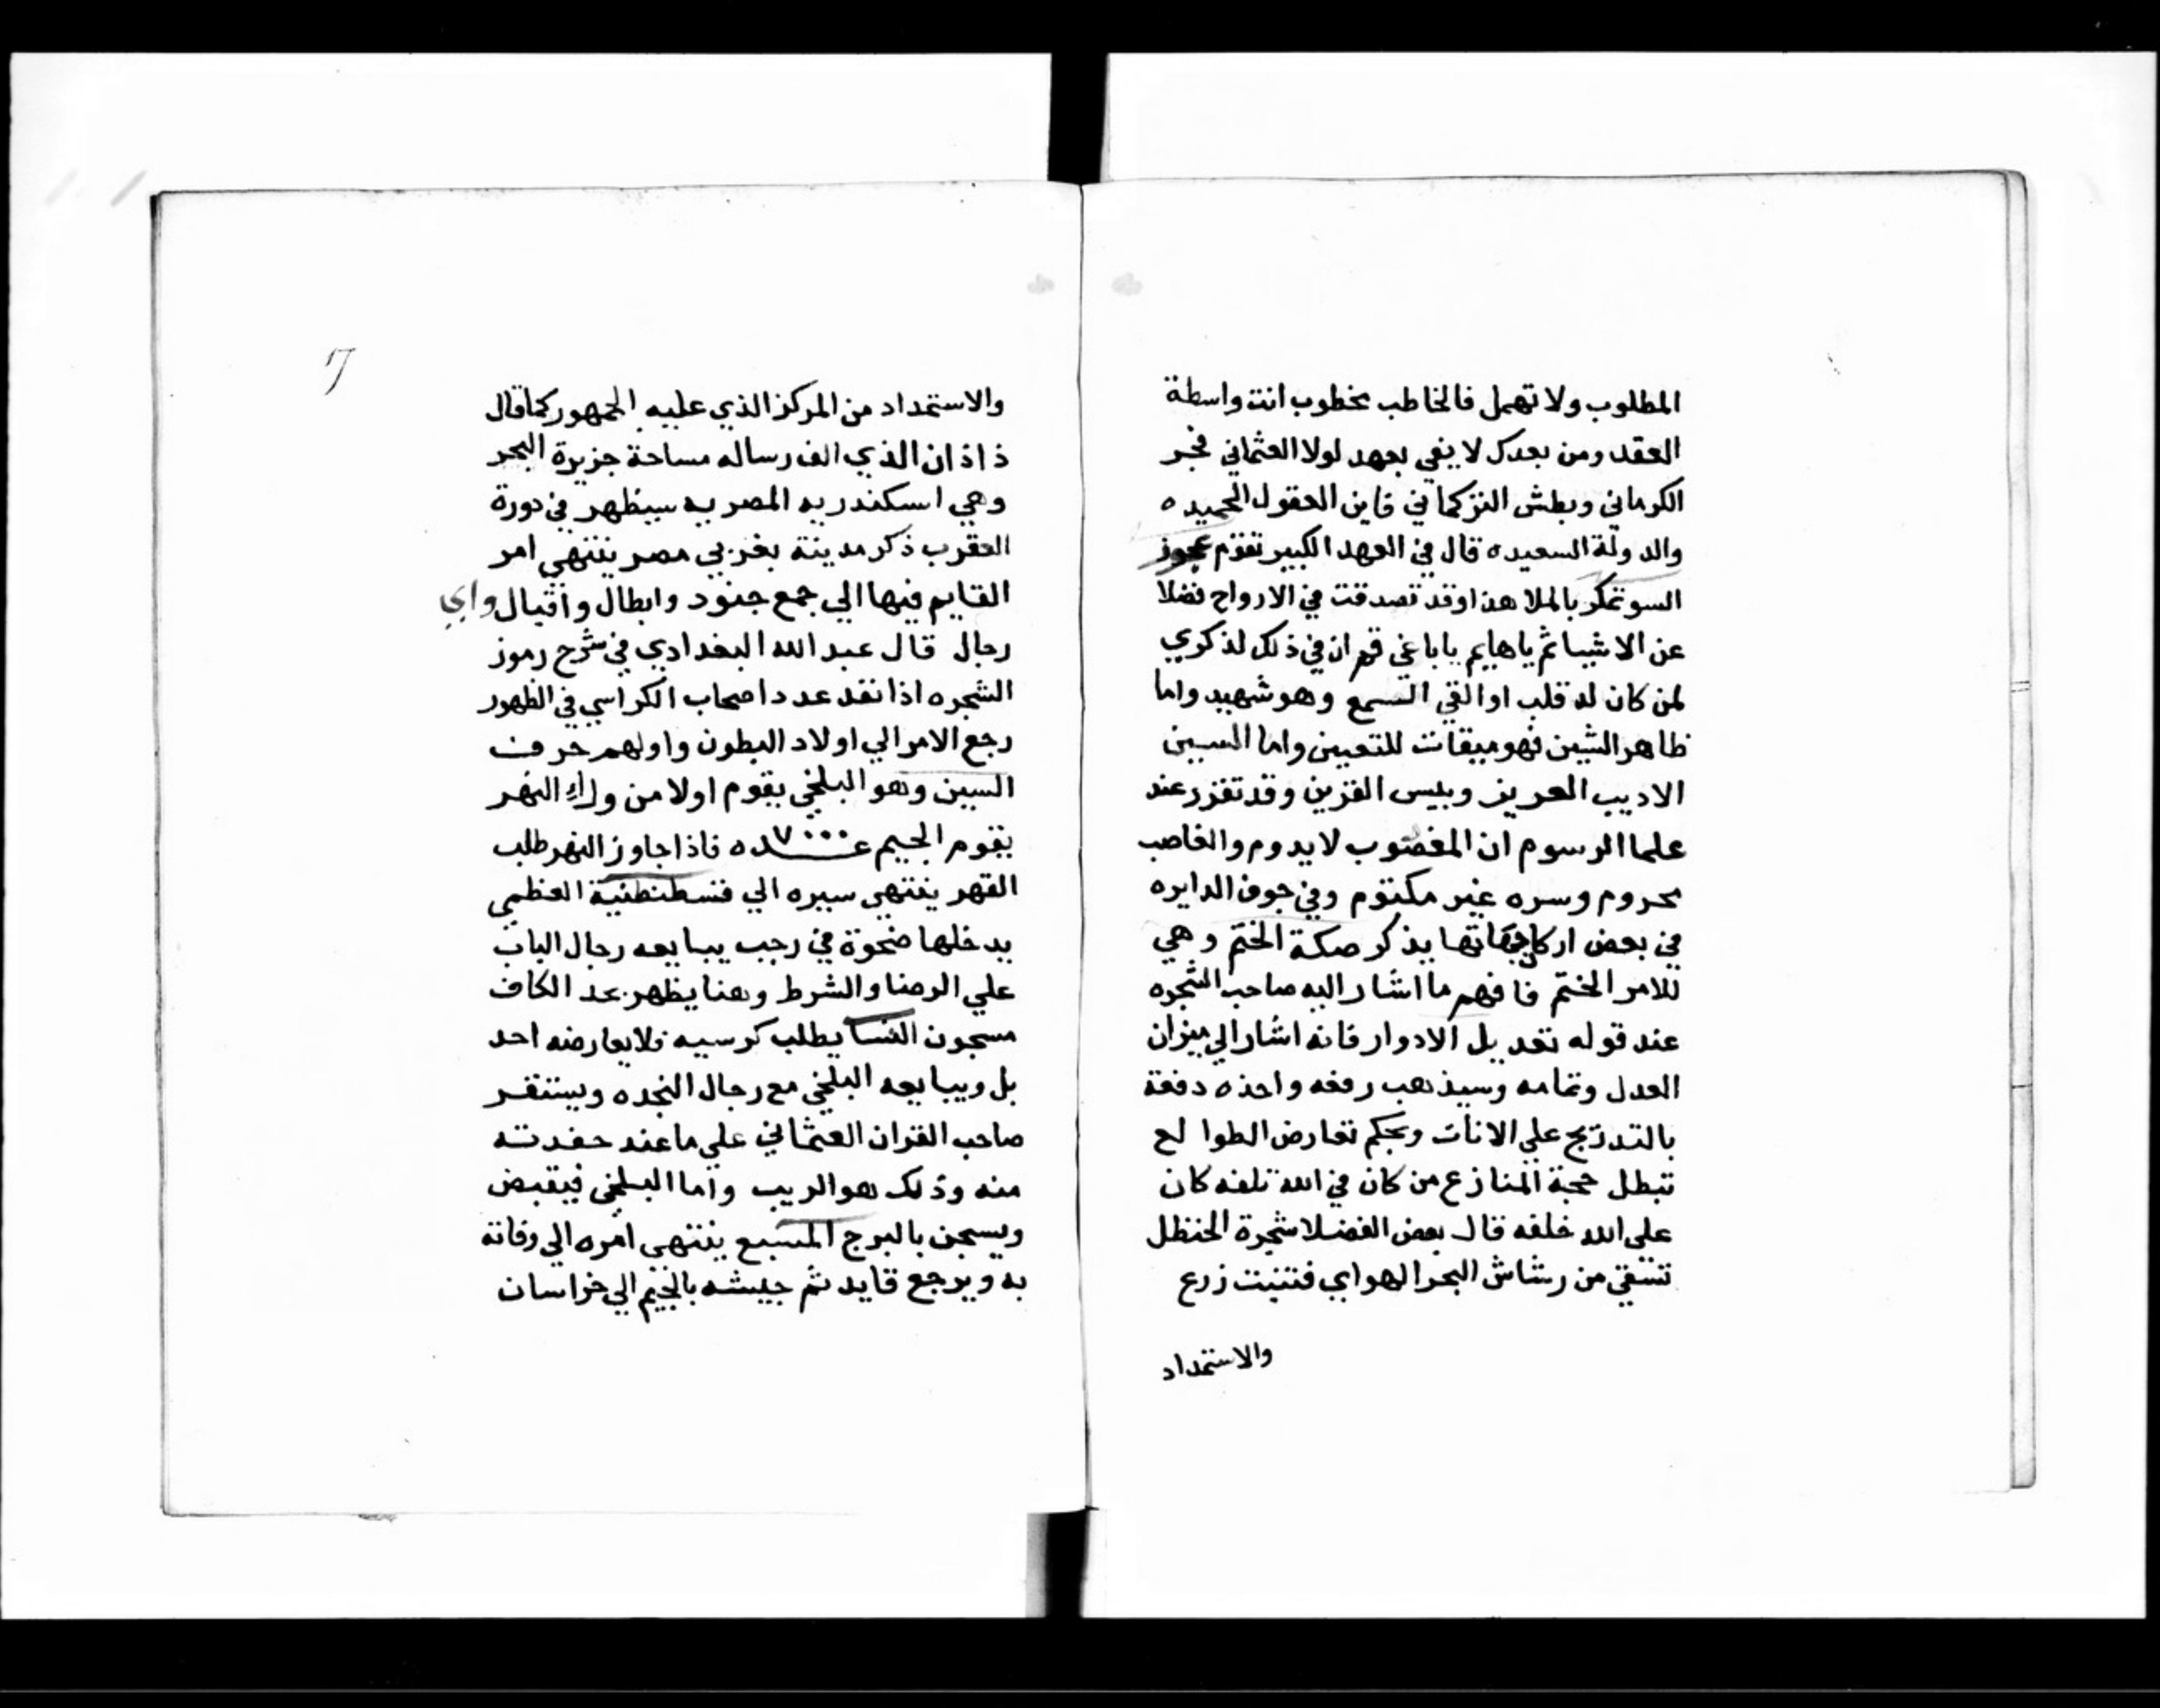 المطلوب ولا تهمل فالخاطب مخطوب انت واسطة
العقد ومن بعدك لا يفي بعهد لولا العثماني فجر
الكرماني وبطش التركماني قاين العقول الحميده ه
والدولة السعيده ه قال في العهد الكبير تقزم عجوز
السو تمكر بالملا هذا وقد تصدقت في الارواح فضلا
عن الاشيا ثم ياهايم يا باغي قم ان في ذلك لذكري
لمن كان له قلب او القي السمع وهو شهيد واما
ظاهر الشين فهو ميقات للتعيين واما السين
الاديب العريز وبيس القزين وقد تقزر عند
علما الرسوم ان المغصوب لا يدوم والغاصب
محروم وسره غير مكتوم وفي جوف الدايره
في بعض يذكر صكة الختم وهي
للامر الختم فافهم ما اشار اليه صاحب الشجره
عند قوله تعديل الادوار فانه اشار الي ميزان
العدل وتمامه وسيذهب رفعه واحذه دفعة
بالتدريج علي الانات وبحكم تعارض الطوالع
تبطل حجة المنازع من كان في الله تلفه كان
علي الله خلفه قال بعض الفضلا شجرة الحنظل
تسقي من رشاش البحر الهوايي فتنبت زرع
والاستمداد
17
والاستمداد من المركز الذي عليه الجمهور كما قال
ذاذان الذي الف رساله مساحة جزيرة البحر
وهي اسكندريه المصريه سيظهر في دورة
العقرب ذكر مدينة بغربي مصر ينتهي امر
القايم فيها الي جمع جنود وابطال واقيال واي
رجال قال عبد الله البغدادي في شرح رموز
الشجره اذا نفد عدد اصحاب الكراسي في الظهور
رجع الامر الي اولاد البطون واولهم حرف
السين وهو البلخي يقوم اولا من وراء النهر
يقوم الجيم عـــده ٧٠٠٠ فاذا جاوز النهر طلب
القهر ينتهي سيره الي قسطنطنية العظمي
يدخلها ضحوة في رجب يبايعه رجال الباب
علي الرضا والشرط وهنا يظهر بعد الكاف
مسجون النسا يطلب كرسيه فلا يعارضه احد
بل ويبايعه البلخي مع رجال النجده ويستقر
صاحب القران العثماني علي ما عند حفدته
منه وذلك هو الريب واما البلخي فيقبض
ويسجن بالبرج المسبع ينتهي امره الي وفاته
به ويرجع قايد ثم جيشه بالجيم الي خراسان